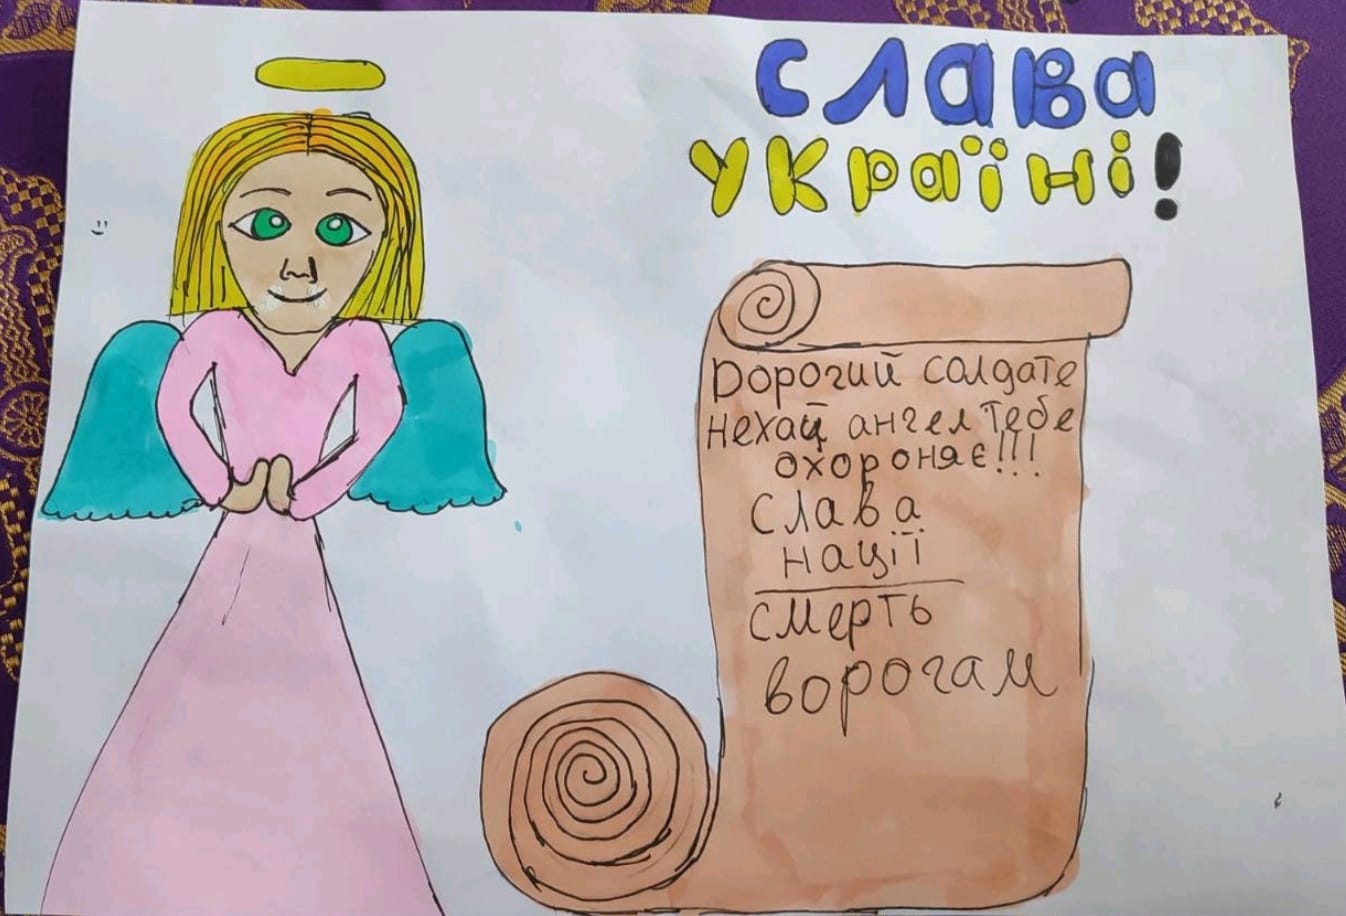 СЛАВА
УКРАЇНІ!
Дорогий солдате
нехай ангел тебе
охороняє!!!
Слава
нації
смерть
ворогам